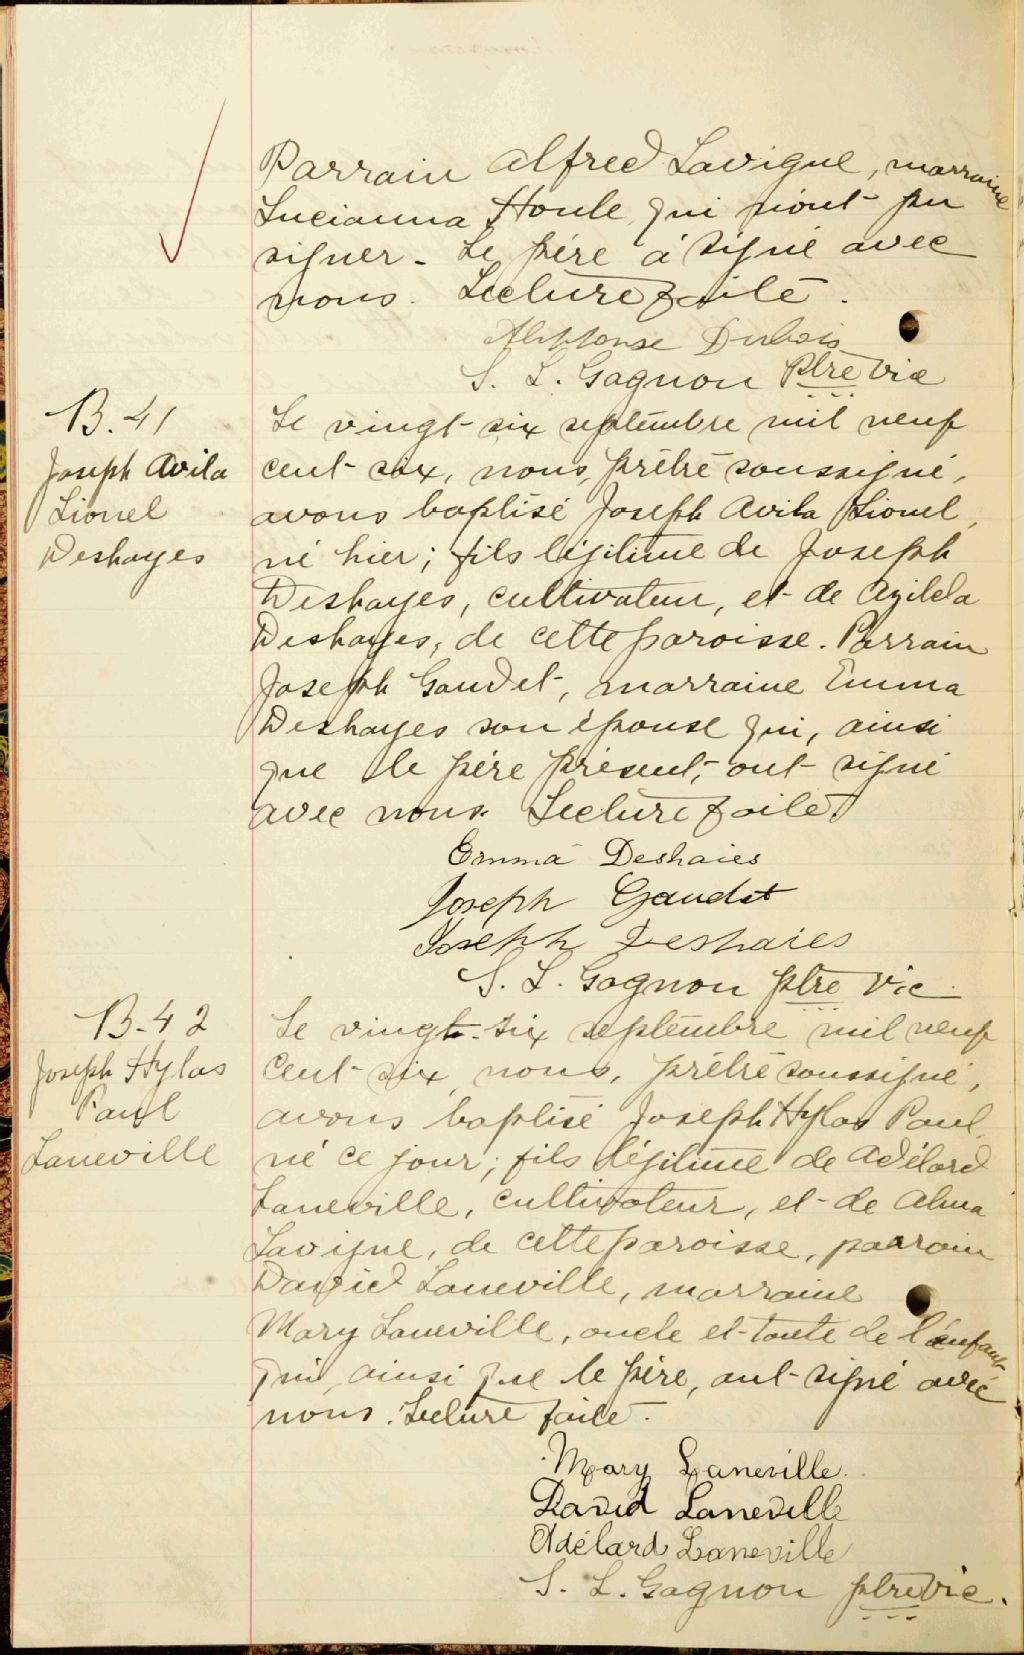 Parrain Alfred Lavigne, marraine
Lucianna Houle qui n'ont pu
signer - Le père à signé avec
nous. Lecture faite.
Alphonse Dubois
S. L. Gagnon Ptre Vic
B. 41
Joseph Avila
Lionel
Deshayes
Le vingt-six septembre mil neuf
cent-six, nous, prêtre soussigné,
avons baptisé Joseph Avila Lionel,
né hier; fils légitime de Joseph
Deshayes, cultivateur, et de Azilda
Deshayes, de cette paroisse. Parrain
Joseph Gaudet, marraine Emma
Deshayes son épouse qui, ainsi
que le père présent, ont signé
avec nous. Lecture faite.
Emma Deshaies
Joseph Gaudet
Joseph Deshaies
S. L. Gagnon ptre Vic.
B-42
Joseph Hylas
Paul
Laneville
Le vingt-six septembre mil neuf
cent-six, nous, prêtre soussigné,
avons baptisé Joseph Hylas Paul,
né ce jour; fils légitime de Adélard
Laneville, cultivateur, et de Alma
Lavigne, de cette paroisse, parrain
David Laneville, marraine
Mary Laneville, oncle et tante de l'enfant
qui, ainsi que le père, ont signé avec
nous. Lecture faite.
Mary Laneville.
David Laneville
Adélard Laneville
S. L. Gagnon ptre vic.